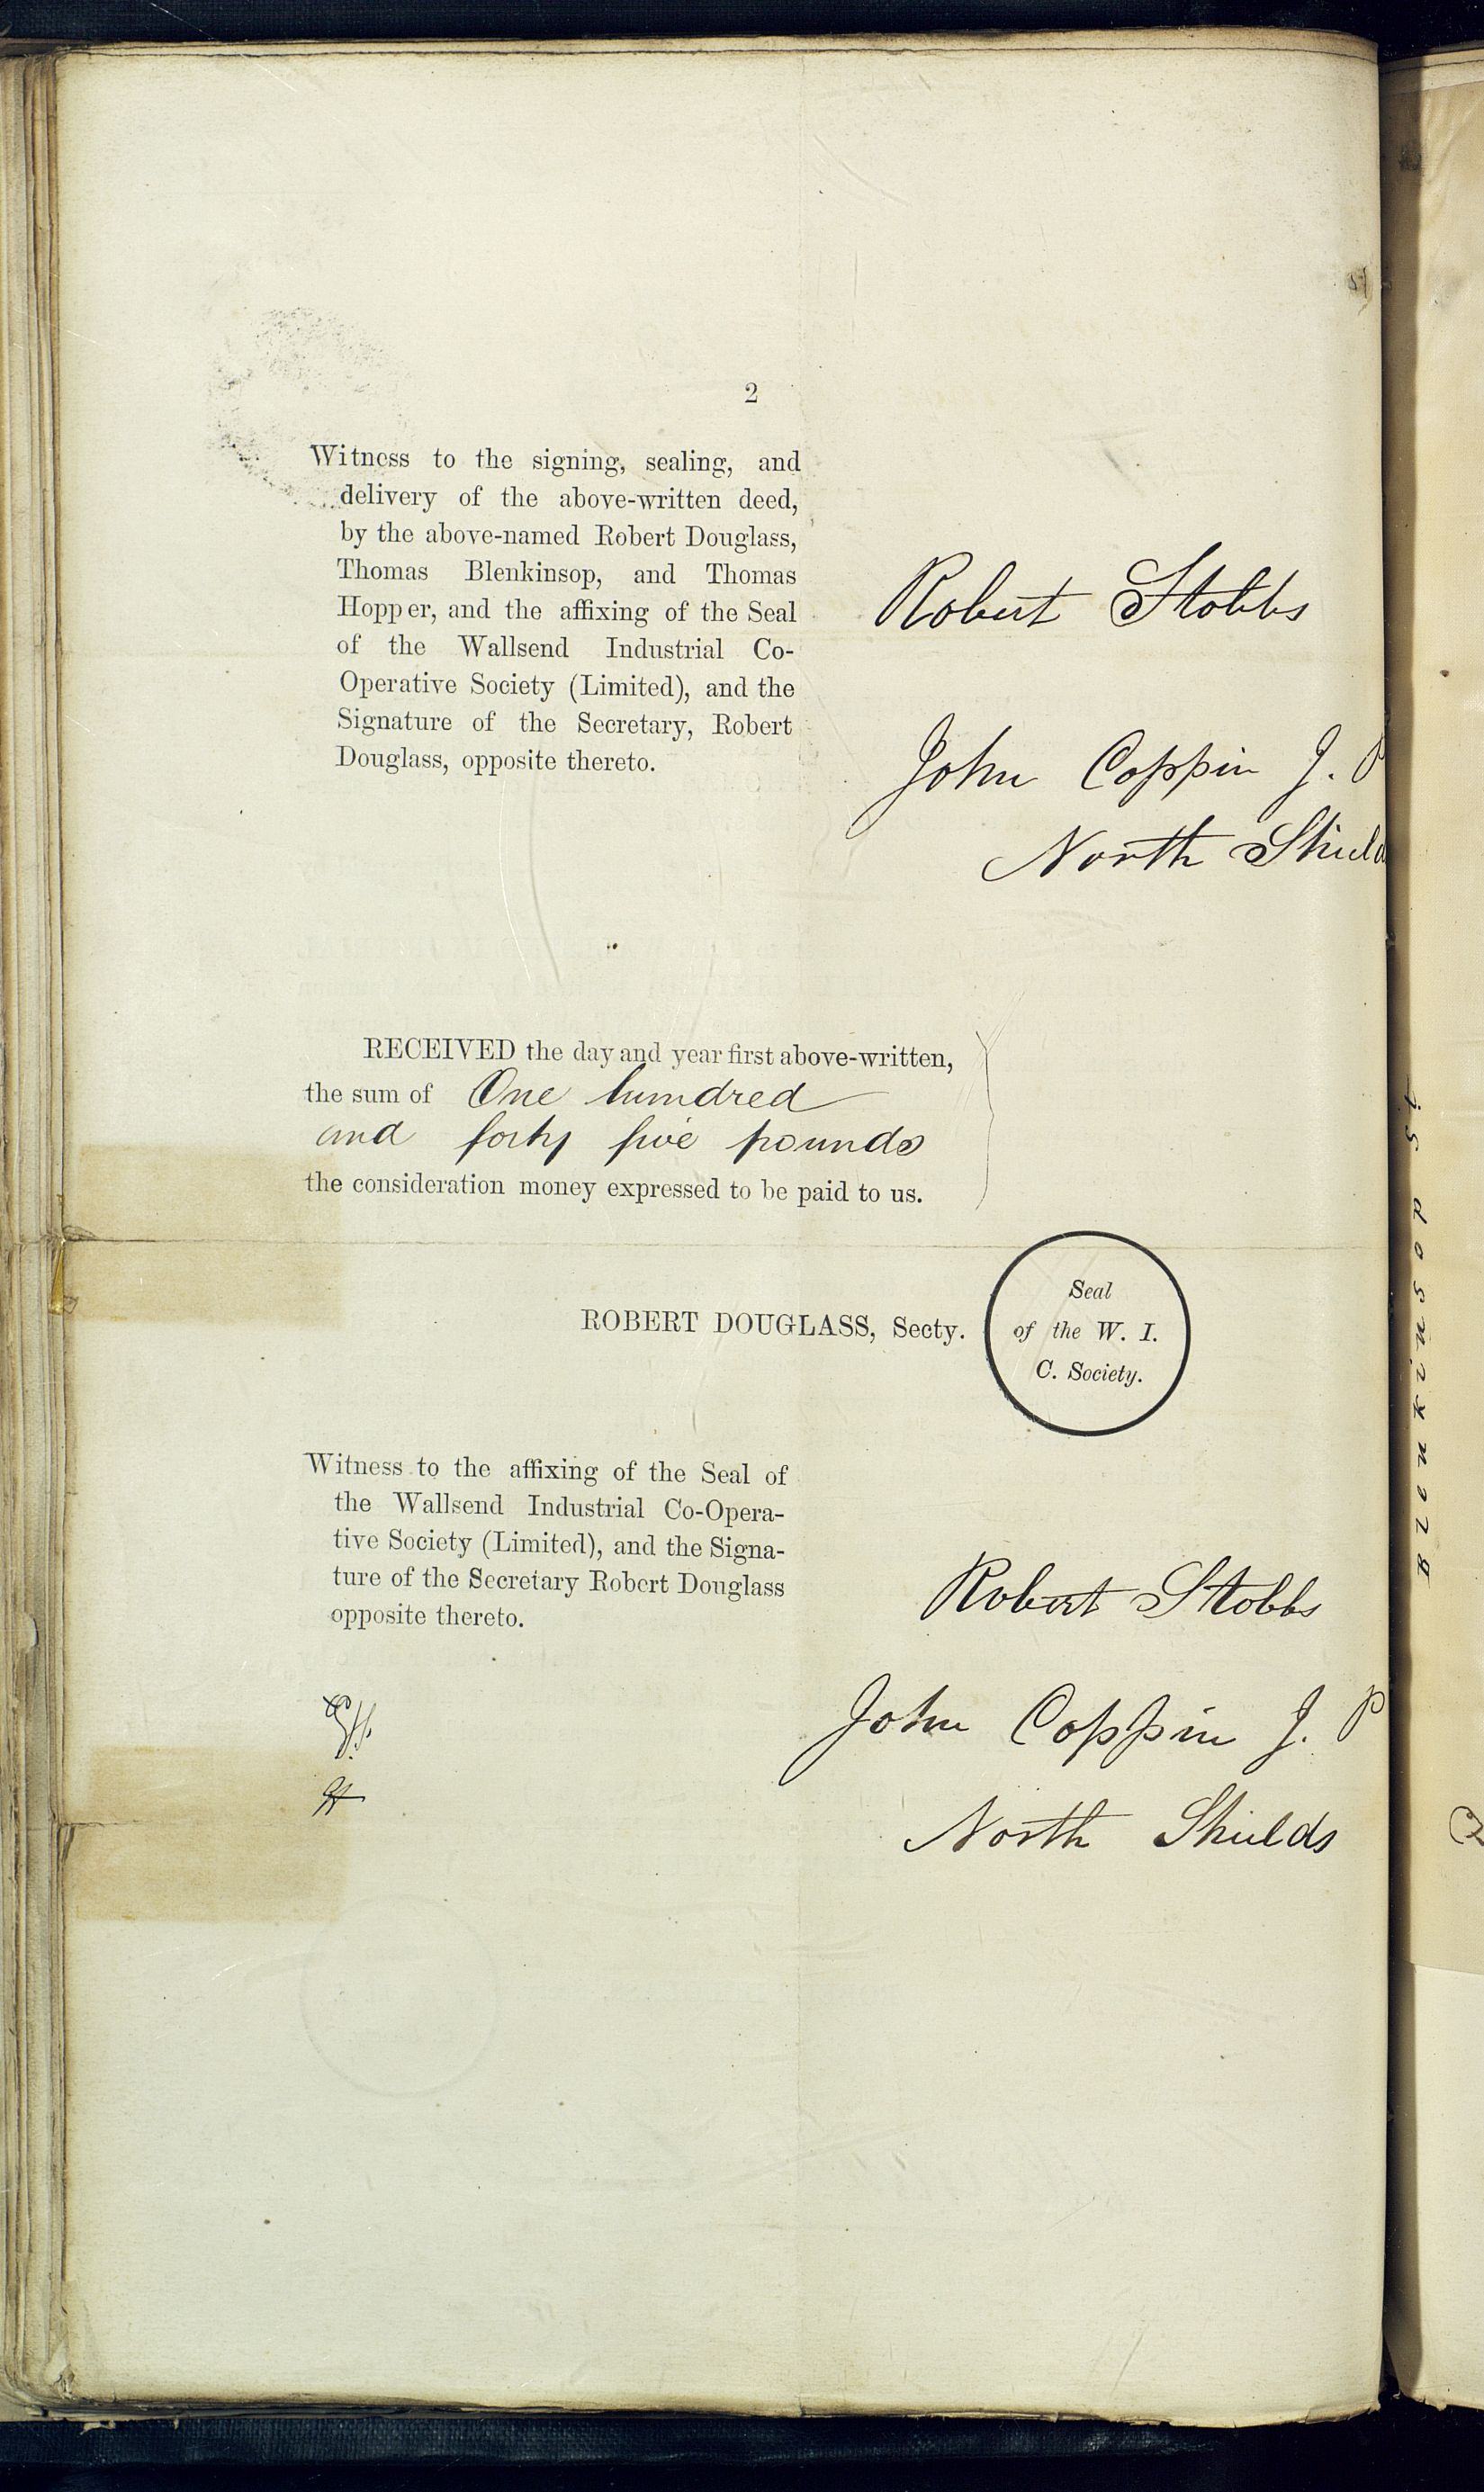 2
Witness to the signing, sealing, and
delivery of the above-written deed,
by the above-named Robert Douglass,
Thomas Blenkinsop, and Thomas
Hopper, and the affixing of the Seal
of the Wallsend Industrial Co-
Operative Society (Limited), and the
Signature of the Secretary, Robert
Douglass, opposite thereto.
Robert Stobbs
John Coppin J. P
North Shields
RECEIVED the day and year first above-written,
the sum of One hundred
and forty five pounds
the consideration money expressed to be paid to us.
ROBERT DOUGLASS, Secty.
Seal
of the W. I.
C. Society.
Witness to the affixing of the Seal of
the Wallsend Industrial Co-Opera-
tive Society (Limited), and the Signa-
ture of the Secretary Robert Douglass
opposite thereto.
Robert Stobbs
John Coppin J. P
North Shields
Blenkinsop St